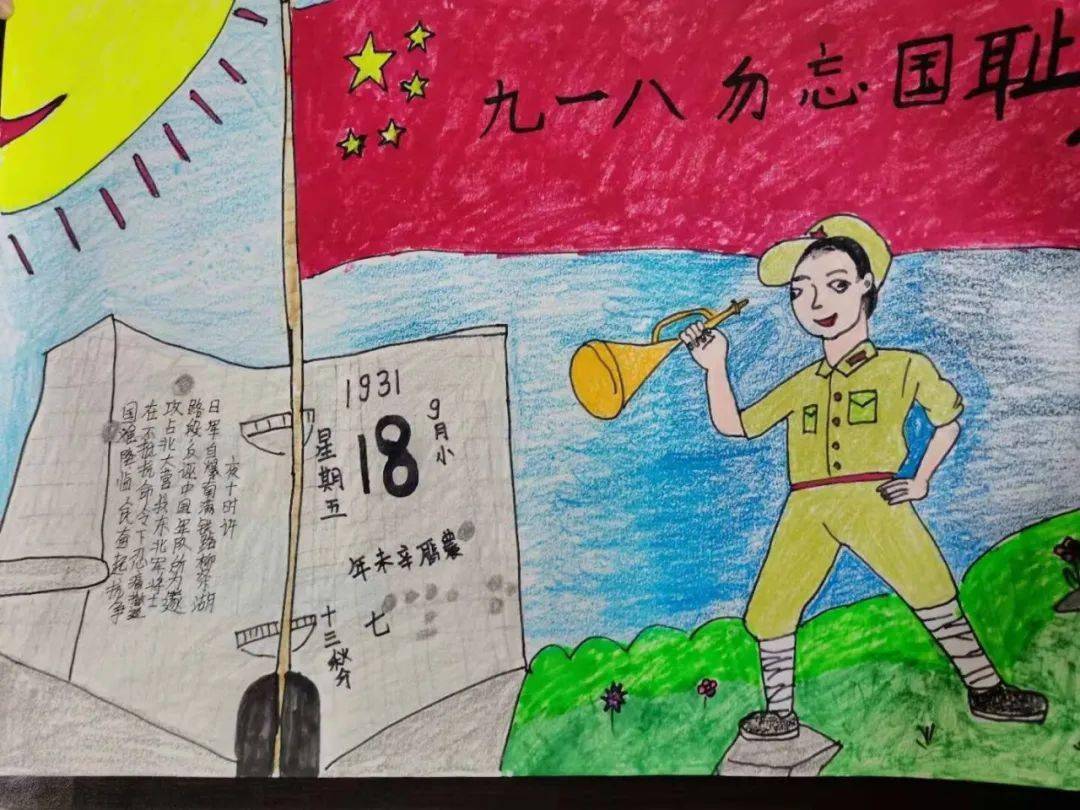 九一八勿忘国耻
1931
18
9月小
星期五
農曆辛未年
七
十三秋分
夜十时许
日军自爆南满铁路柳条湖
路段反诬中国军队所为遂
攻占北大营我东北军将士
在不抵抗命令下忍痛撤退
国难降临人民奋起抗争